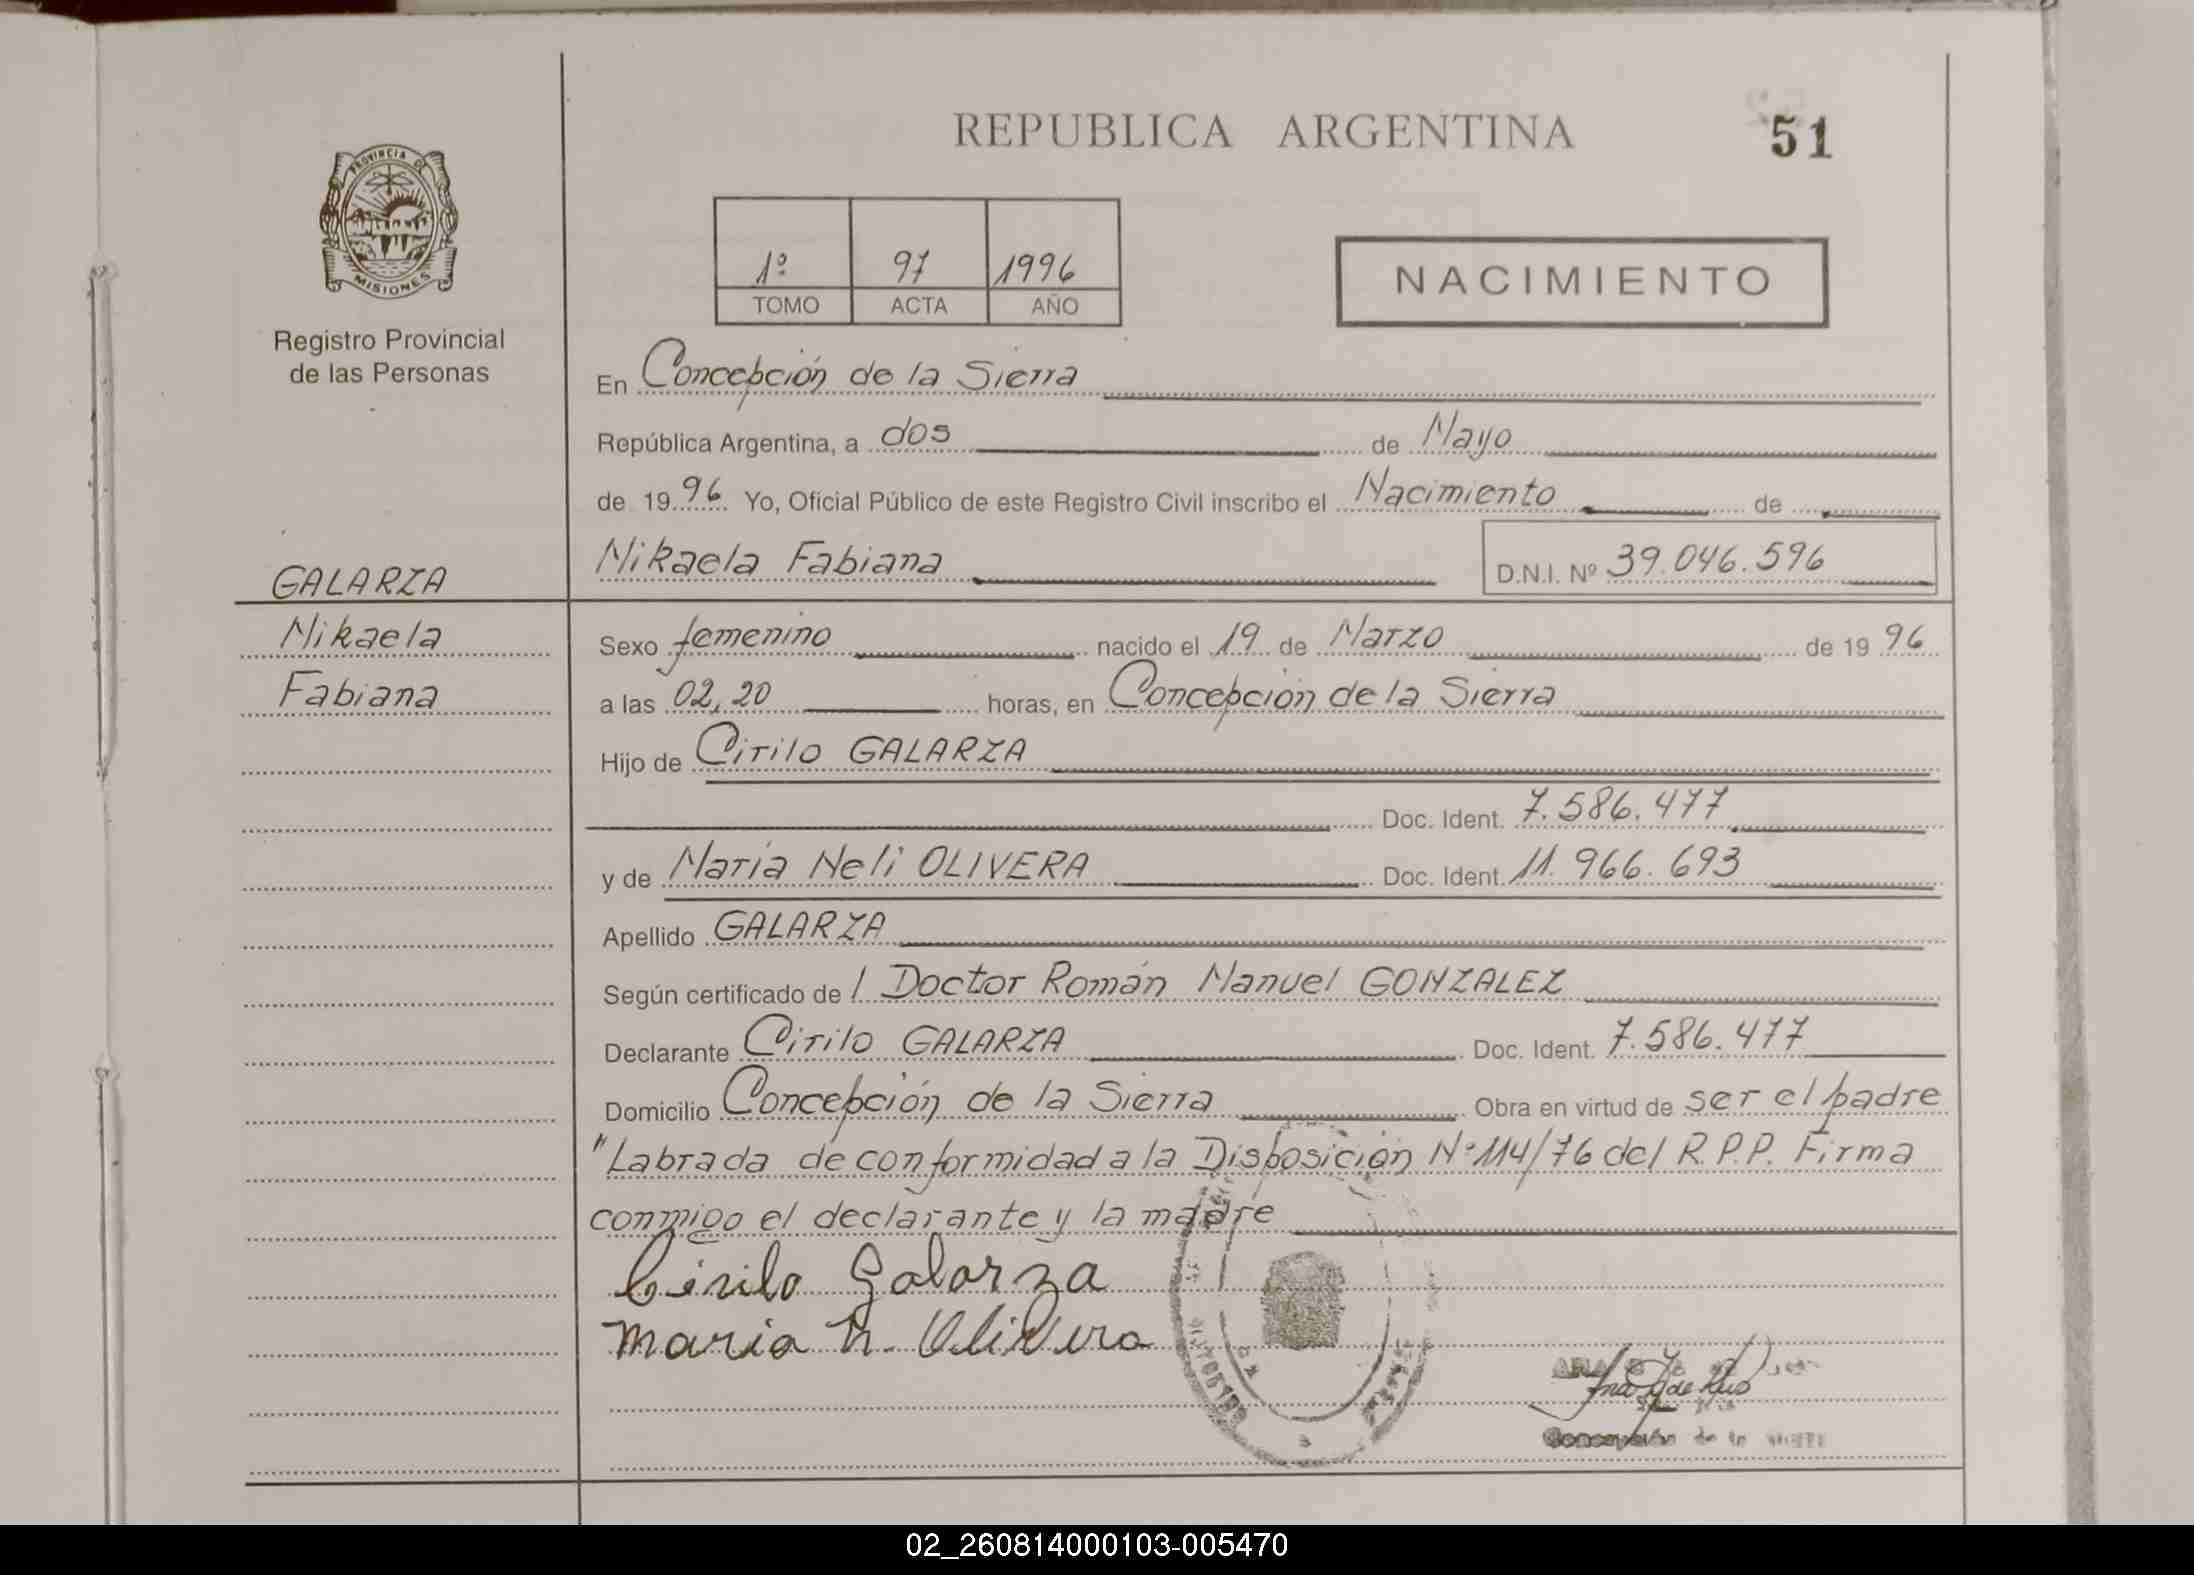 REPUBLICA ARGENTINA
51
PROVINCIA DE
MISIONES
Registro Provincial
de las Personas
1º 97 1996
TOMO ACTA AÑO
NACIMIENTO
En Concepción de la Sierra
República Argentina, a dos de Mayo
de 1996 Yo, Oficial Público de este Registro Civil inscribo el Nacimiento de
GALARZA
Mikaela Fabiana D.N.I. Nº 39.046.596
Mikaela
Fabiana
Sexo femenino nacido el 19 de Marzo de 1996
a las 02,20 horas, en Concepción de la Sierra
Hijo de Cirilo GALARZA
Doc. Ident. 7.586.477
y de María Neli OLIVERA Doc. Ident. 11.966.693
Apellido GALARZA
Según certificado de l Doctor Román Manuel GONZALEZ
Declarante Cirilo GALARZA Doc. Ident. 7.586.477
Domicilio Concepción de la Sierra Obra en virtud de ser el padre
"Labrada de conformidad a la Disposición Nº 114/76 del R.P.P. Firma
conmigo el declarante y la madre
Cirilo Galarza
maria n. Olivera
Concepción de la
02_260814000103-005470